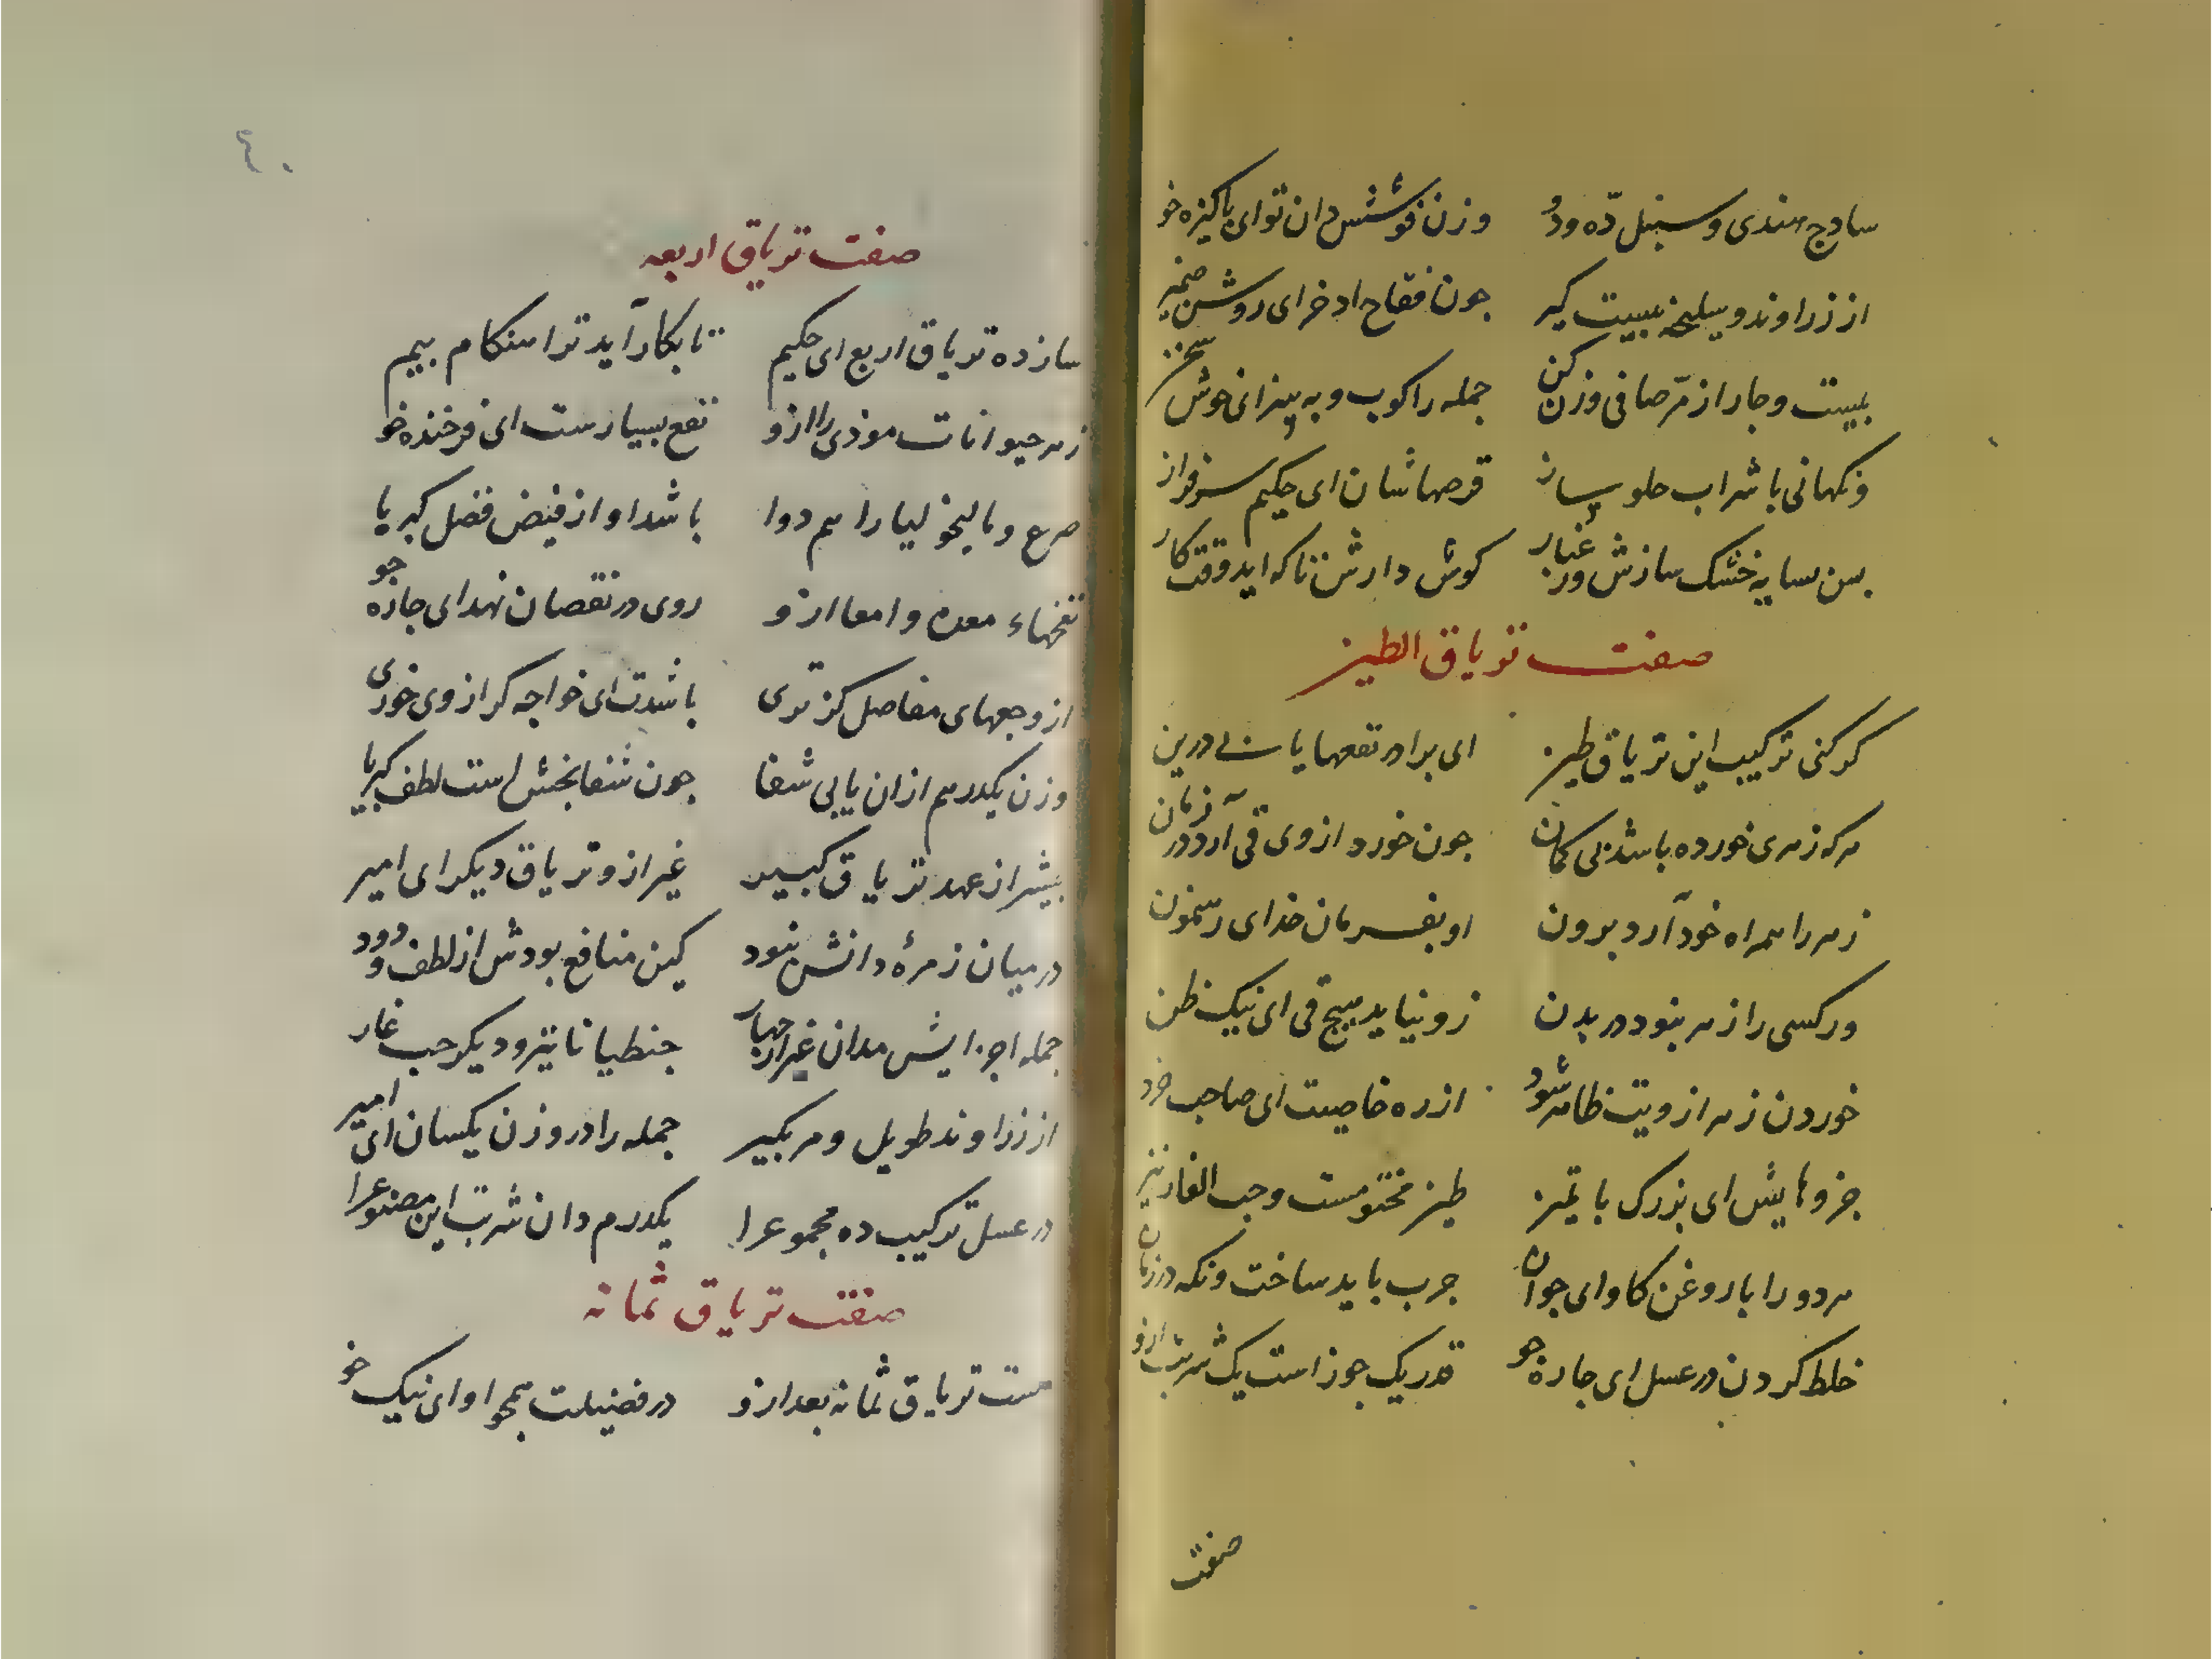 سادج هندی و سنبل ده ودو وزن فوشش دان تو ای پاکیزه خو
از زراوند و سلیخه بیست گیر جون فقاح ادخر ای روشن ضمیر
بیست و جار از مر صافی وزن کن جمله را کوب و به پیز ای خوش سخن
ونکهانی با شراب حلو ساز قرصهاشان ای حکیم سرفراز
بس بسایه خشک سازش ور غبار کوش دارش تا که اید وقت کار
صفت تریاق الطین
کر کنی ترکیب این تریاق طین ای برادر نفعها یابی درین
هر که زهری خورده باشد بی کمان جون خورد از وی قی آرد در زمان
زهر را همراه خود آرد برون او بفرمان خدای رهنمون
ور کسی را زهر نبود در بدن زو نیاید هیچ قی ای نیک ظن
خوردن زهر از ویت ظاهر شود از ره خاصیت ای صاحب خرد
جزوهایش ای بزرک با تمیز طین مختومست و حب الغار نیز
هر دو را با روغن کاو ای جوان جرب باید ساخت ونکه در زمان
خلط کردن در عسل ای جاره جو قدر یک جوز است یک شربت ازو
صفت
٤٠
صفت تریاق اربعه
ساز ده تریاق اربع ای حکیم تا بکار آید ترا هنکام بیم
زهر حیوانات موذی را ازو نفع بسیارست ای فرخنده خو
صرع و مالیخولیا را هم دوا باشد او از فیض فضل کبریا
نفخهاء معده و امعا ازو روی در نقصان نهد ای جاره جو
از وجعهای مفاصل کز تری باشدت ای خواجه کر از وی خوری
وزن یکدرهم ازان یابی شفا جون شفا بخش است لطف کبریا
بیشتر از عهد تریاق کبیر غیر ازو تریاق دیکر ای امیر
در میان زمرهٔ دانش نبود کین منافع بودش از لطف ودود
جمله اجزایش مدان غیر از جهار جنطیانا نیز و دیکر حب غار
از زراوند طویل و مر بکیر جمله را در وزن یکسان ای امیر
در عسل ترکیب ده مجموع را یکدرم دان شربت این مصنوع را
صفت تریاق ثمانه
هست تریاق ثمانه بعد ازو در فضیلت همجو او ای نیک خو